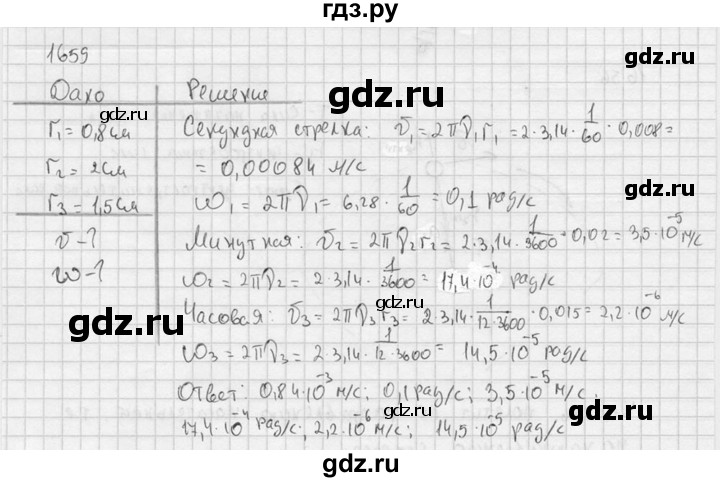 гдз.ру
1659
gdz.ru
gdz.ru
Дано
Решение
gdz.ru
gdz.ru
r₁=0,8см
Секундная стрелка: v₁=2πν₁r₁=2·3,14·1/60·0,008=
r₂=2см
=0,00084 м/с
gdz.ru
r₃=1,5см
ω₁=2πν₁=6,28·1/60=0,1 рад/с
gdz.ru
v-?
Минутная: v₂=2πν₂r₂=2·3,14·1/3600·0,02=3,5·10⁻⁵ м/с
ω-?
ω₂=2πν₂=2·3,14·1/3600=17,4·10⁻⁴ рад/с
gdz.ru
gdz.ru
Часовая: v₃=2πν₃r₃=2·3,14·1/12·3600·0,015=2,2·10⁻⁶ м/с
gdz.ru
ω₃=2πν₃=2·3,14·1/12·3600=14,5·10⁻⁵ рад/с
gdz.ru
Ответ: 0,84·10⁻³ м/с; 0,1 рад/с; 3,5·10⁻⁵ м/с;
gdz.ru
17,4·10⁻⁴ рад/с; 2,2·10⁻⁶ м/с; 14,5·10⁻⁵ рад/с
gdz.ru
gdz.ru
gdz.ru